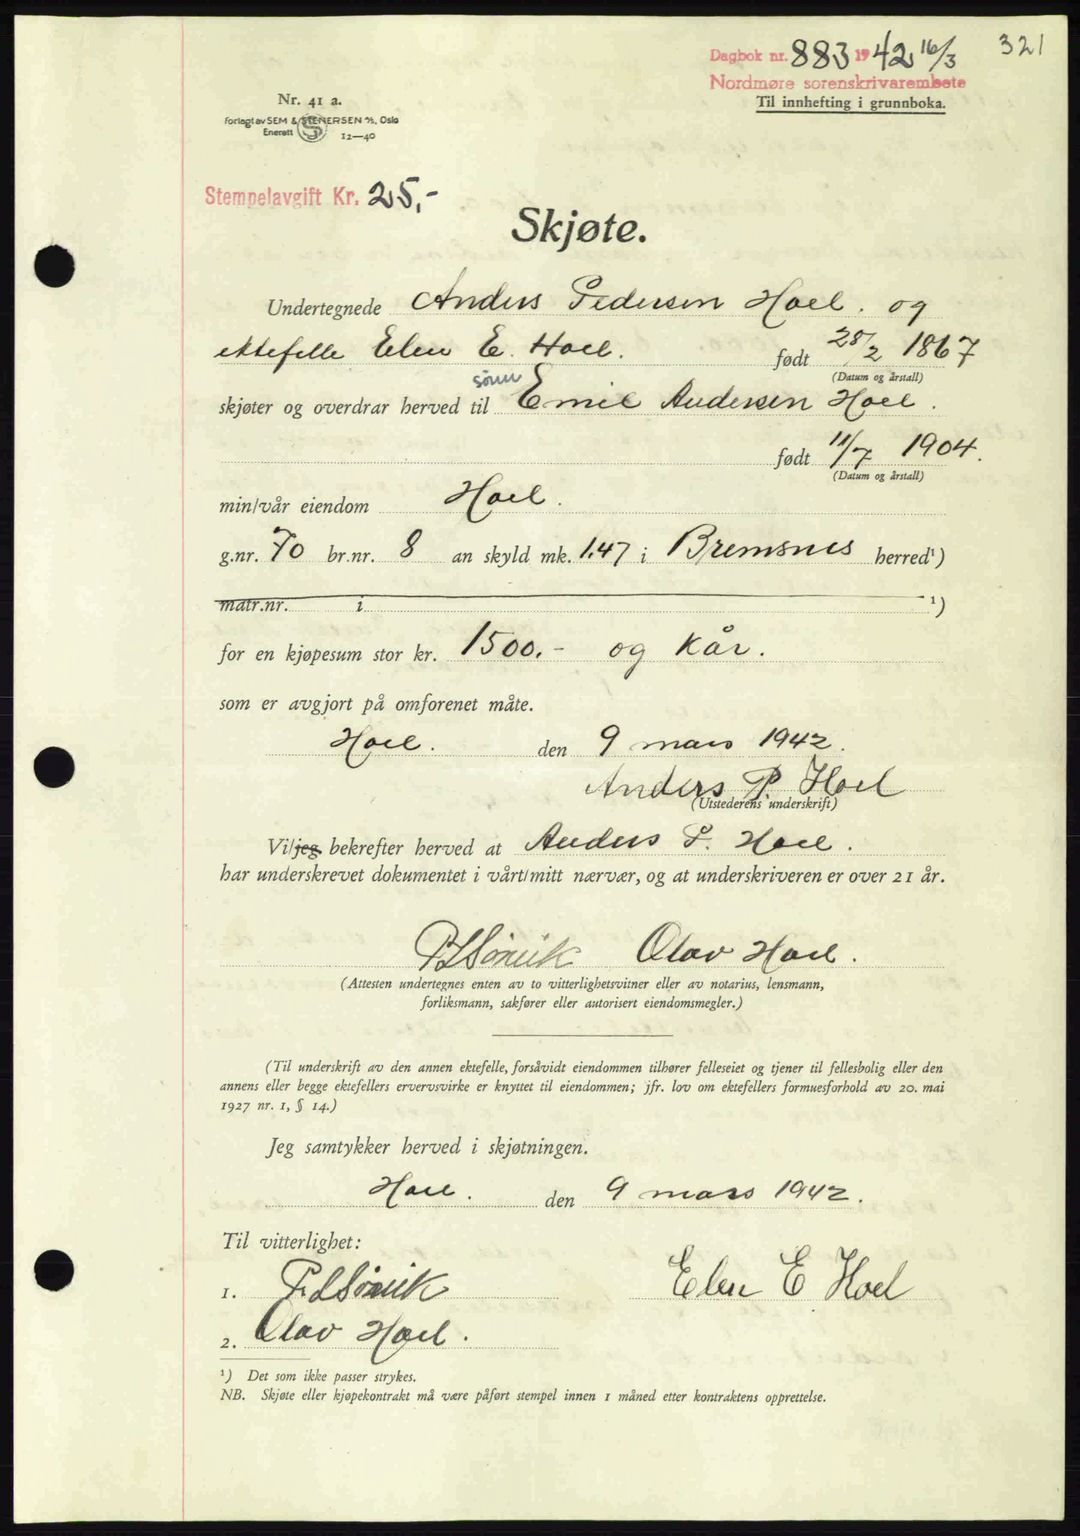 321
Dagbok nr. 883 1942 16/3
Nordmøre sorenskrivarembete
Til innhefting i grunnboka.
Nr. 41 a.
Forlagt av SEM & STENERSEN A/S, Oslo
Enerett S 12—40
Stempelavgift Kr. 25,-
Skjøte.
Undertegnede Anders Pedersen Hoel. og
ektefelle Elen E. Hoel. født 28/2 1867
(Datum og årstall)
sønn
skjøter og overdrar herved til Emil Andersen Hoel.
født 11/7 1904.
(Datum og årstall)
min/vår eiendom Hoel.
g.nr. 70 br.nr. 8 an skyld mk. 1.47 i Bremsnes herred¹)
matr.nr. i ¹)
for en kjøpesum stor kr. 1500.- og kår.
som er avgjort på omforenet måte.
Hoel. den 9 mars 1942.
Anders P. Hoel
(Utstederens underskrift)
Vi/jeg bekrefter herved at Anders P. Hoel.
har underskrevet dokumentet i vårt/mitt nærvær, og at underskriveren er over 21 år.
Olav Hoel.
(Attesten undertegnes enten av to vitterlighetsvitner eller av notarius, lensmann,
forliksmann, sakfører eller autorisert eiendomsmegler.)
(Til underskrift av den annen ektefelle, forsåvidt eiendommen tilhører felleseiet og tjener til fellesbolig eller den
annens eller begge ektefellers ervervsvirke er knyttet til eiendommen; jfr. lov om ektefellers formuesforhold av 20. mai
1927 nr. 1, § 14.)
Jeg samtykker herved i skjøtningen.
Hoel. den 9 mars 1942.
Til vitterlighet:
1. Elen E Hoel
2. Olav Hoel.
¹) Det som ikke passer strykes.
NB. Skjøte eller kjøpekontrakt må være påført stempel innen 1 måned etter kontraktens opprettelse.